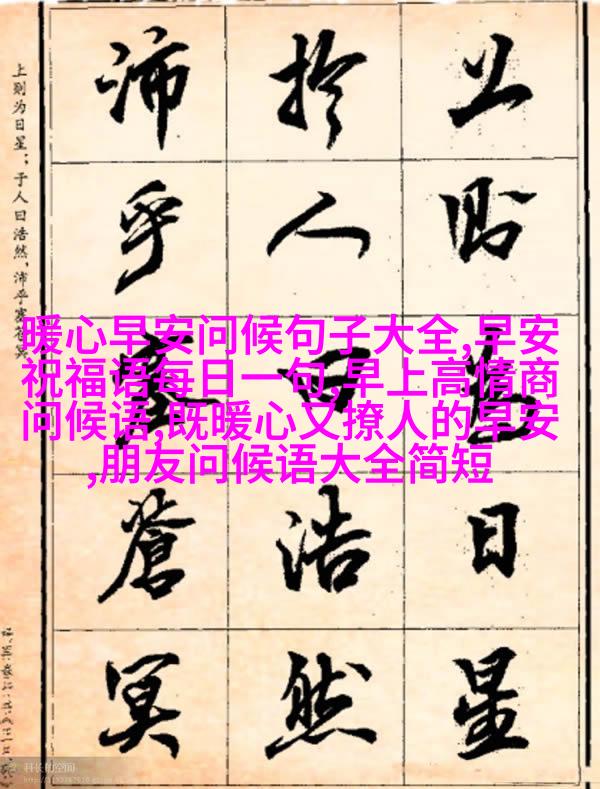 上則為日星
於人曰浩然
沛乎塞蒼冥
上则为日星；于人曰浩然，沛乎塞苍冥
暖心早安问候句子大全,早安
祝福语每日一句,早上高情商
问候语,既暖心又撩人的早安
,朋友问候语大全简短
科长的空间